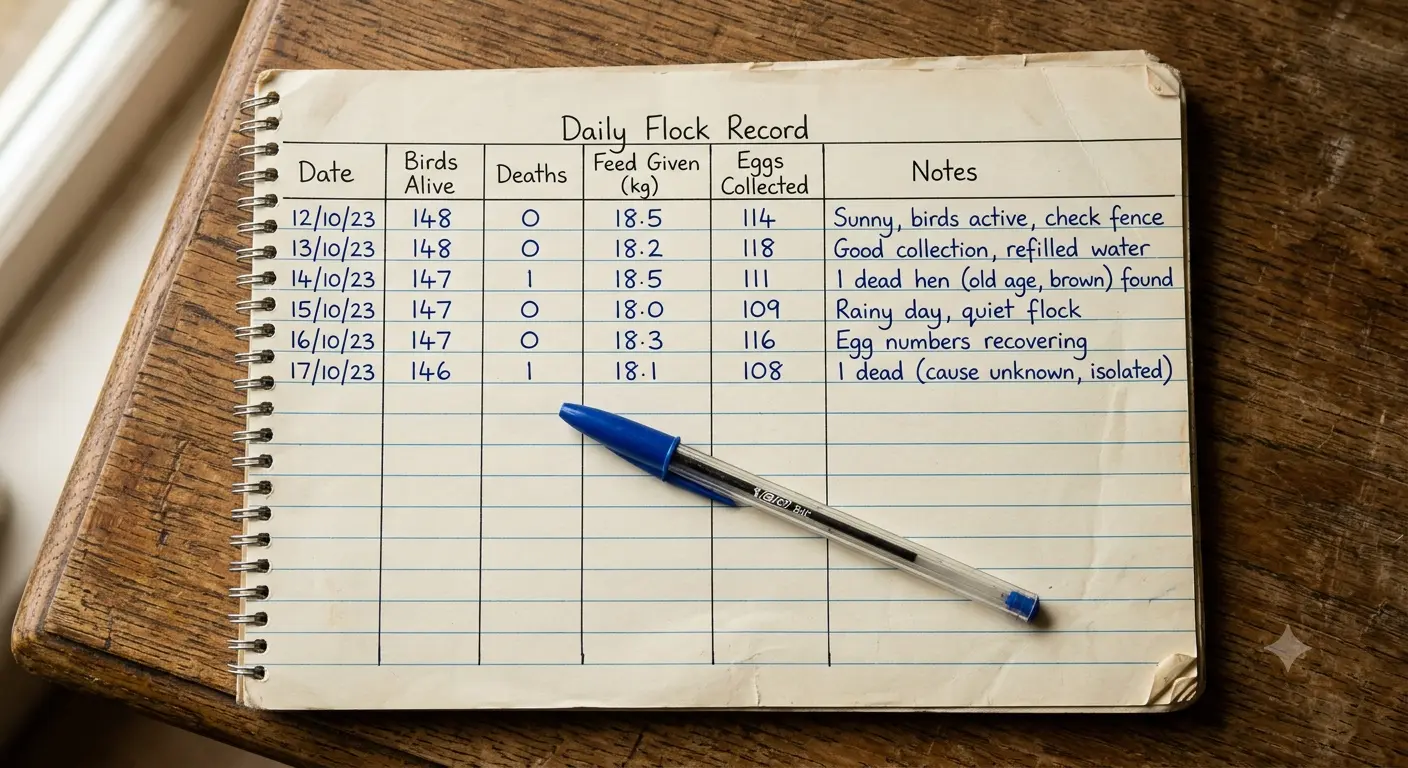 Daily Flock Record
Date Birds Alive Deaths Feed Given (kg) Eggs Collected Notes
12/10/23 148 0 18.5 114 Sunny, birds active, check fence
13/10/23 148 0 18.2 118 Good collection, refilled water
14/10/23 147 1 18.5 111 1 dead hen (old age, brown) found
15/10/23 147 0 18.0 109 Rainy day, quiet flock
16/10/23 147 0 18.3 116 Egg numbers recovering
17/10/23 146 1 18.1 108 1 dead (cause unknown, isolated)